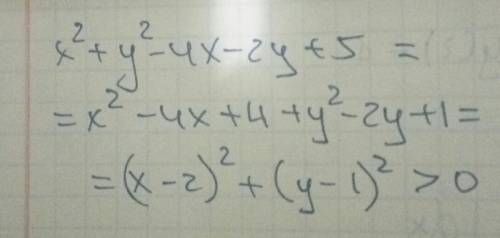 x² + y² - 4x - 2y + 5 =
= x² - 4x + 4 + y² - 2y + 1 =
= (x - 2)² + (y - 1)² > 0